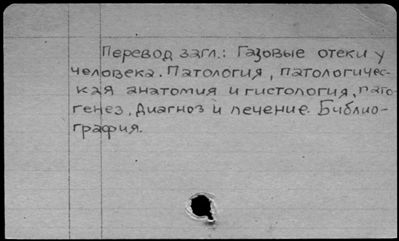 Перевод загл.: Газовые отеки у
человека. Патология, патологичес-
кая анатомия и гистология, пато-
генез, диагноз и лечение. Библио-
графия.